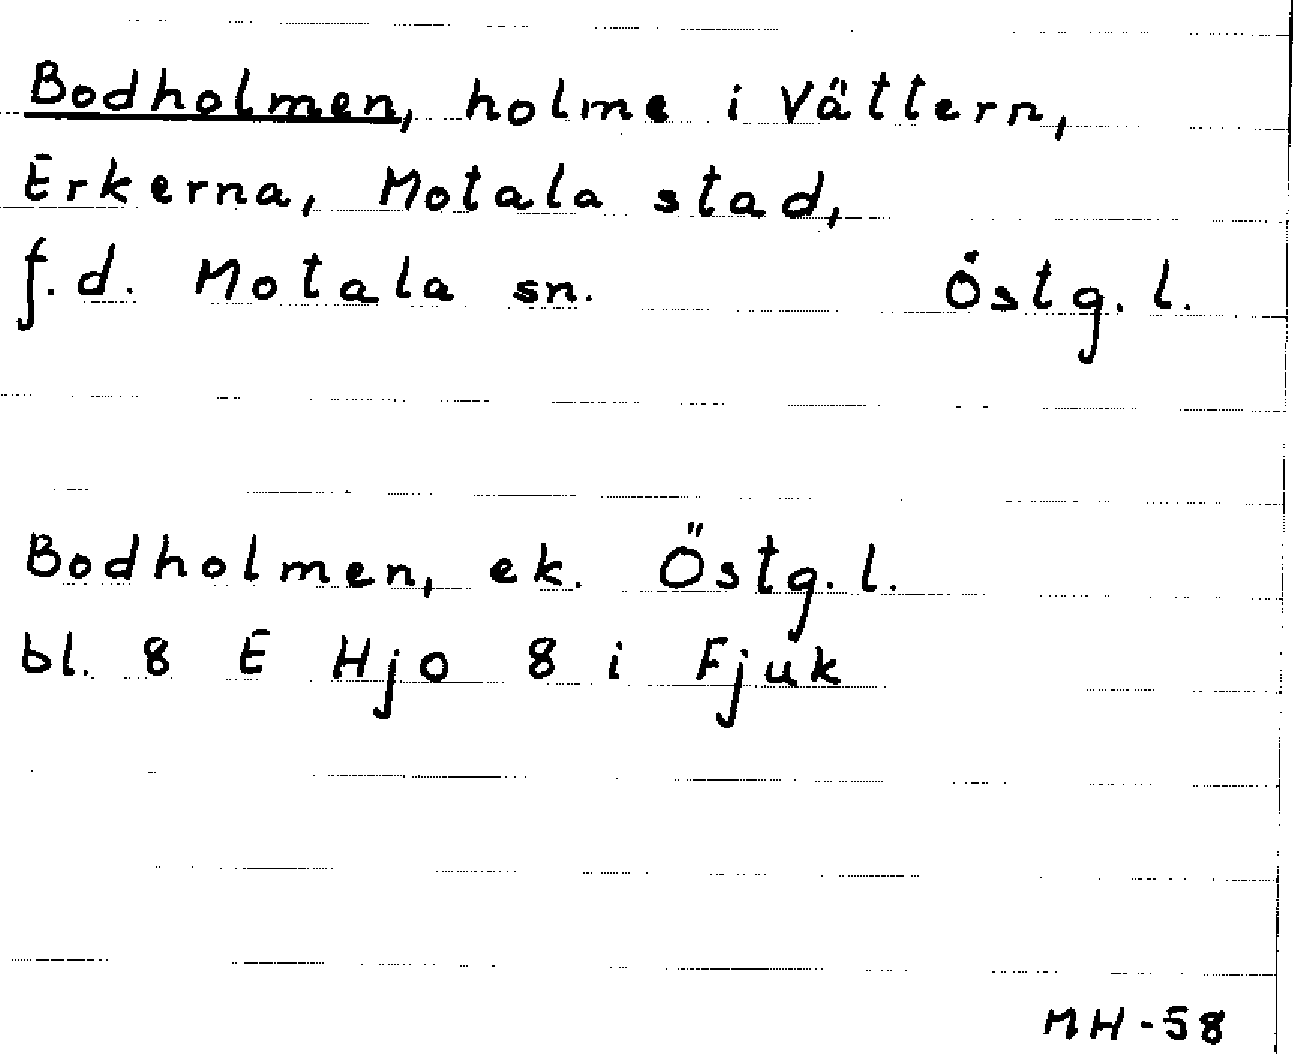 Bodholmen, holme i Vättern,
Erkerna, Motala stad,
f.d. Motala sn. Östg. l.
Bodholmen, ek. Östg. l.
bl. 8 E Hjo 8 i Fjuk
MH-58